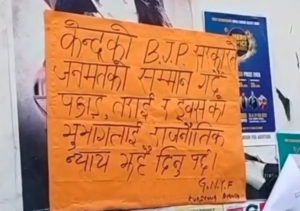 केन्द्रको B.J.P. सरकारले
जनमतको सम्मान गर्दै
पहाड, तराई र डुवर्सको
भुभागलाई राजनीतिक
न्याय दिनु पर्छ।
G.N.Y.F